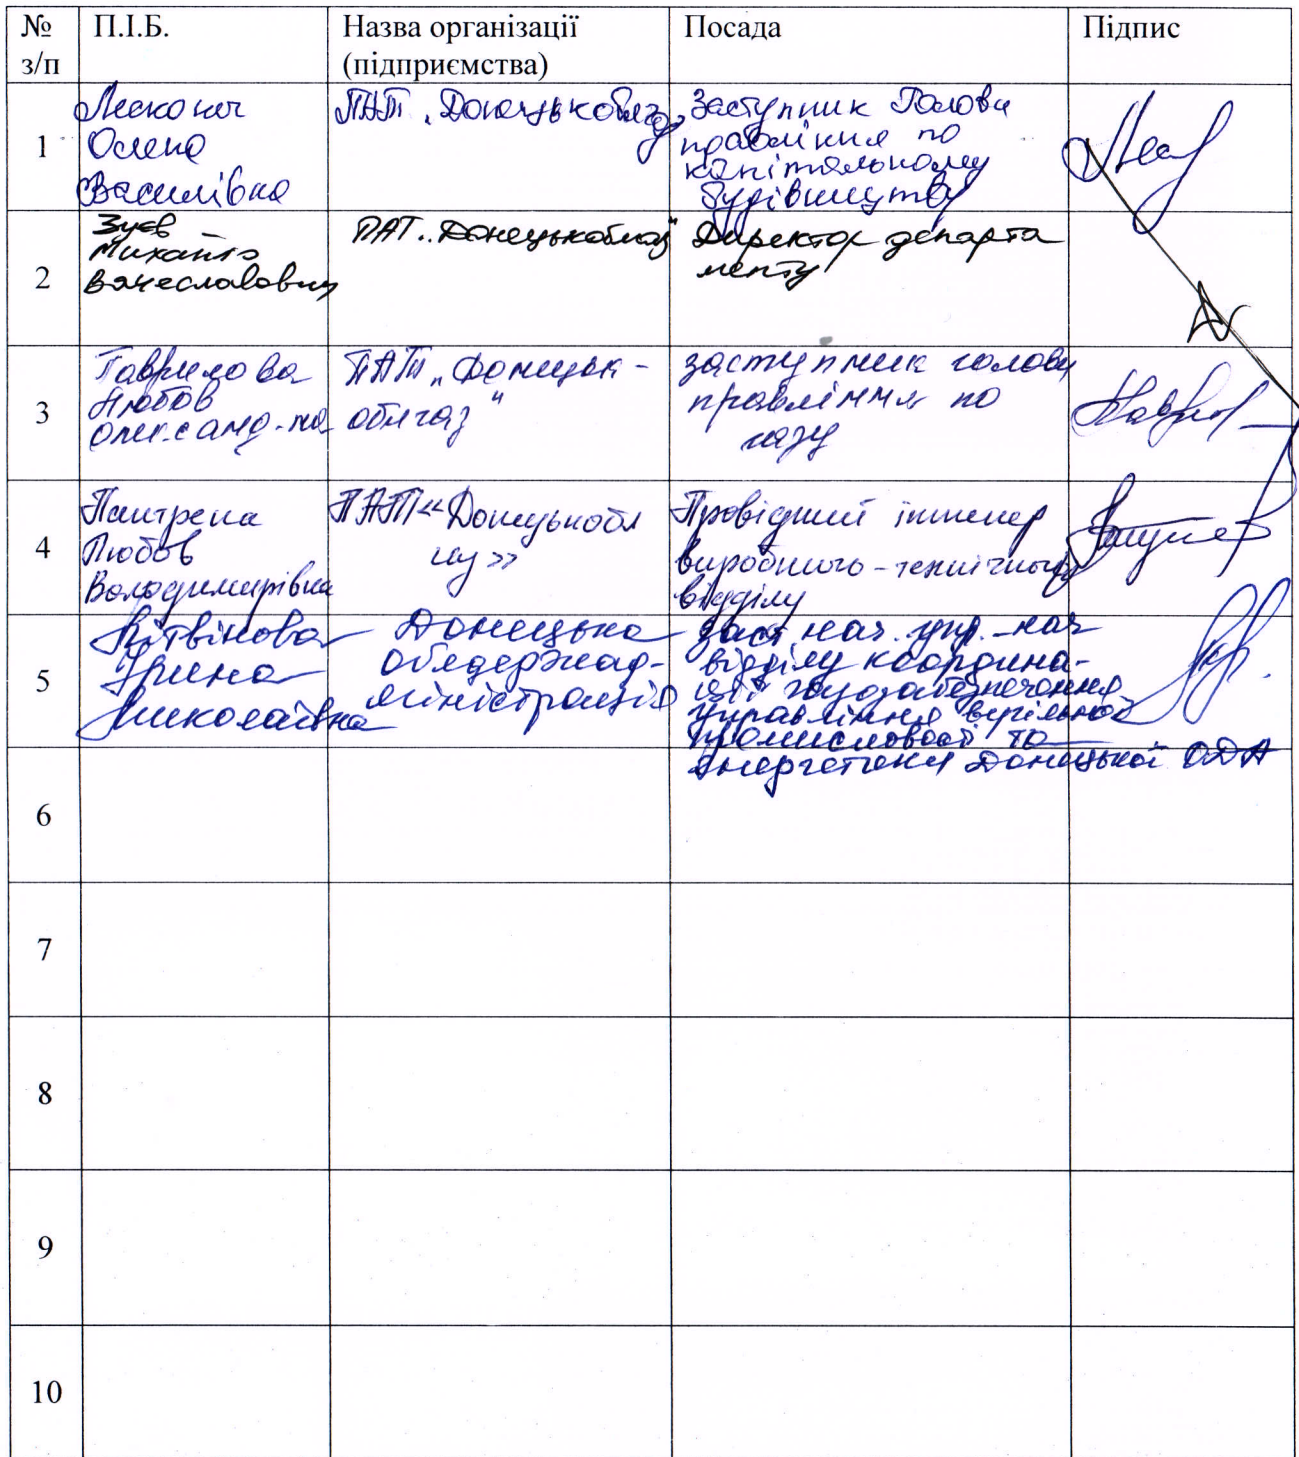 № з/п П.І.Б. Назва організації (підприємства) Посада Підпис
1
Олена
Василівна
ПАТ „Донецькоблгаз"
Заступник Голови
правління по
капітальному
будівництву
2
Зуєв
Михайло
Вячеславович
ПАТ „Донецькоблгаз"
Директор департа
менту
3
Гаврилова
Любов
Олександ-на
ПАТ „Донецьк-
облгаз"
заступник голови
правління по
газу
4
Любов
Володимирівна
ПАТ «Донецькобл
газ»
Провідний інженер
виробничо-технічного
відділу
5
Літвінова
Ірина
Миколаївна
Донецька
облдержад-
міністрація
заст нач. упр. - нач
відділу координа-
ції газозабезпечення
управління вугільної
промисловості та
енергетики Донецької ОДА
6
7
8
9
10